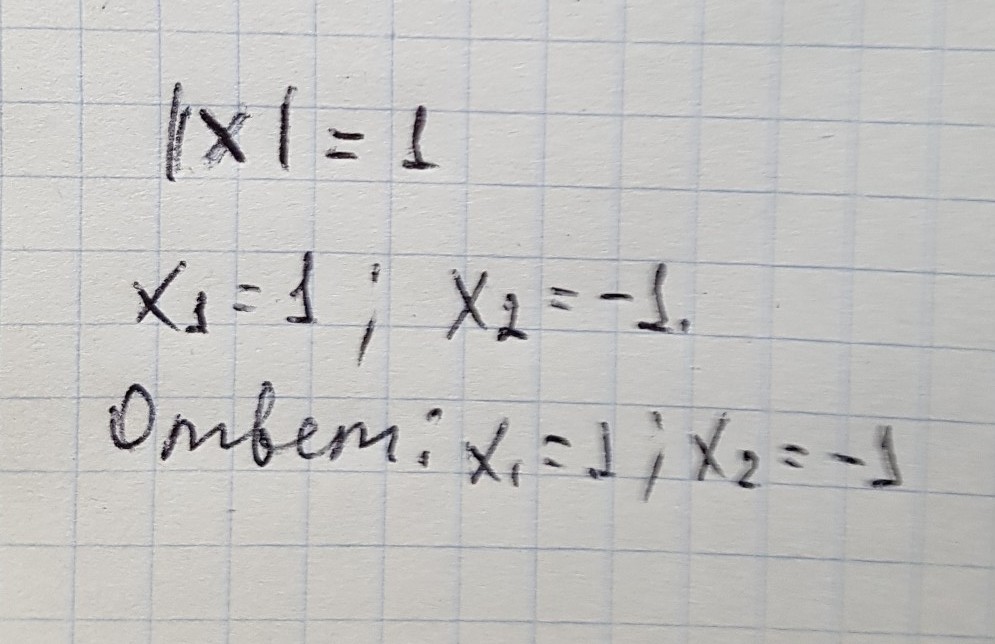 |x| = 1
x₁ = 1 ; x₂ = -1.
Ответ: x₁ = 1 ; x₂ = -1